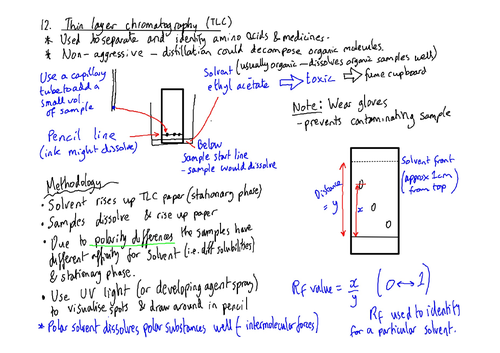 12. Thin layer chromatography (TLC)
* Used to separate and identify amino acids & medicines.
* Non-aggressive - distillation could decompose organic molecules.
Use a capillary
tube to add a
small vol.
of sample
Solvent (usually organic - dissolves organic samples well)
ethyl acetate → toxic → fume cupboard
Note: Wear gloves
- prevents contaminating sample
Pencil line
(ink might dissolve)
Below
sample start line
- sample would dissolve
Methodology
• Solvent rises up TLC paper (stationary phase)
• Samples dissolve & rise up paper
• Due to polarity differences the samples have
different affinity for solvent (i.e. diff solubilities)
& stationary phase.
• Use UV light (or developing agent spray)
to visualise spots & draw around in pencil
* Polar solvent dissolves polar substances well (intermolecular forces)
Distance
= y
x
Solvent front
(approx 1cm
from top)
Rf value = x/y (0↔1)
Rf used to identify
for a particular solvent.